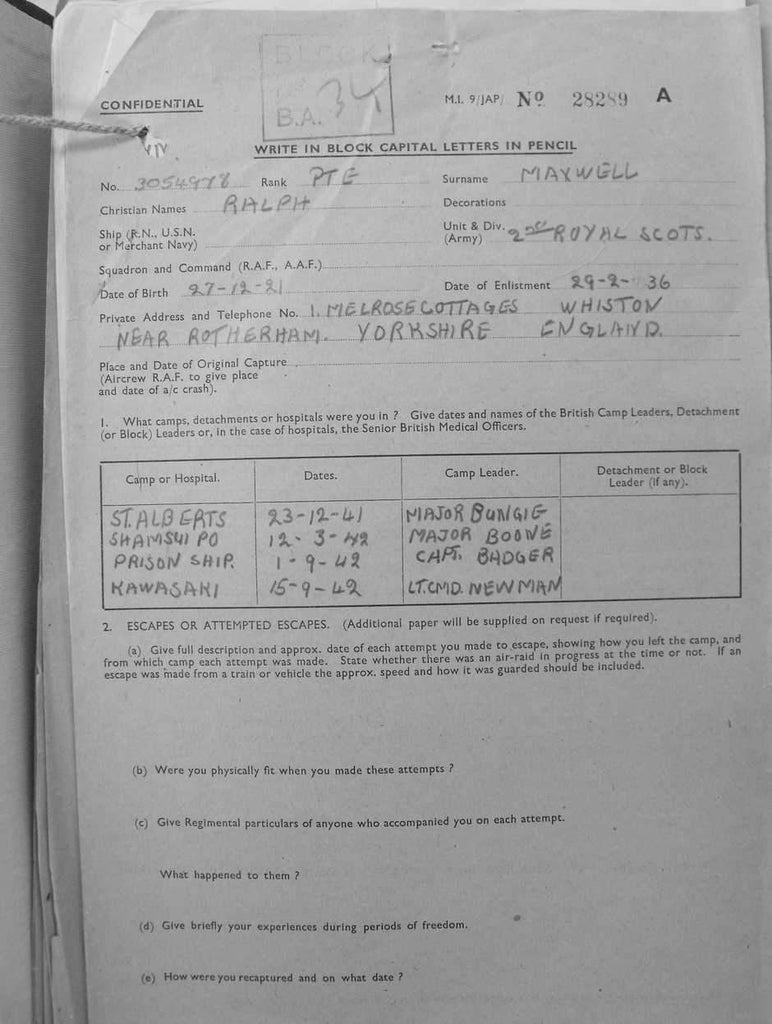 BLOCK
B.A. 34
CONFIDENTIAL
M.I. 9/JAP/ No 28289 A
WRITE IN BLOCK CAPITAL LETTERS IN PENCIL
No. 3054978 Rank PTE Surname MAXWELL
Christian Names RALPH Decorations
Ship (R.N., U.S.N. or Merchant Navy) Unit & Div. (Army) 2nd ROYAL SCOTS.
Squadron and Command (R.A.F., A.A.F.)
Date of Birth 27-12-21 Date of Enlistment 29-2-36
Private Address and Telephone No. 1. MELROSE COTTAGES WHISTON
NEAR ROTHERHAM. YORKSHIRE ENGLAND.
Place and Date of Original Capture
(Aircrew R.A.F. to give place
and date of a/c crash).
1. What camps, detachments or hospitals were you in ? Give dates and names of the British Camp Leaders, Detachment
(or Block) Leaders or, in the case of hospitals, the Senior British Medical Officers.
Camp or Hospital. Dates. Camp Leader. Detachment or Block Leader (if any).
ST. ALBERTS 23-12-41 MAJOR BUNGIE
SHAMSUI PO 12-3-42 MAJOR BOONE
PRISON SHIP. 1-9-42 CAPT. BADGER
KAWASAKI 15-9-42 LT.CMD. NEWMAN
2. ESCAPES OR ATTEMPTED ESCAPES. (Additional paper will be supplied on request if required).
(a) Give full description and approx. date of each attempt you made to escape, showing how you left the camp, and
from which camp each attempt was made. State whether there was an air-raid in progress at the time or not. If an
escape was made from a train or vehicle the approx. speed and how it was guarded should be included.
(b) Were you physically fit when you made these attempts ?
(c) Give Regimental particulars of anyone who accompanied you on each attempt.
What happened to them ?
(d) Give briefly your experiences during periods of freedom.
(e) How were you recaptured and on what date ?